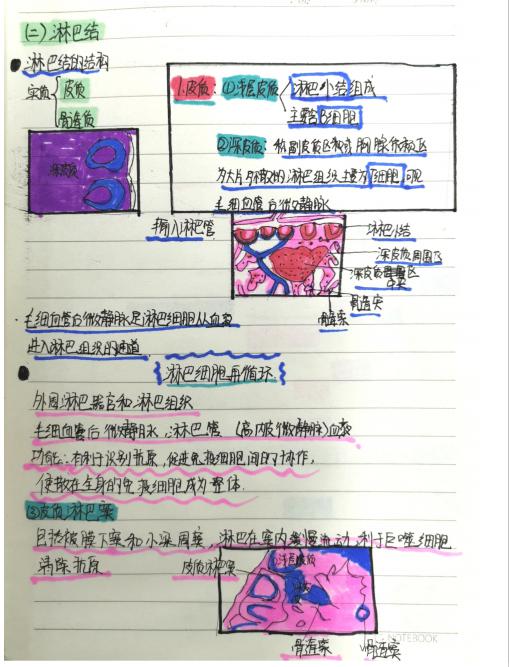 (二)淋巴结
淋巴结的结构
实质
皮质
髓质
1.皮质:①浅层皮质
淋巴小结组成
主要含B细胞
②深皮质:称副皮质区或胸腺依赖区
为大片弥散的淋巴组织主要为T细胞 可见
毛细血管后微静脉
深皮质
输入淋巴管
淋巴小结
深皮质周围区
深皮质
髓窦
髓索
毛细血管后微静脉是淋巴细胞从血液
进入淋巴组织的通道
{淋巴细胞再循环}
外周淋巴器官和淋巴组织
毛细血管后微静脉,淋巴管 (高内皮微静脉)血液
功能:有利于识别抗原,促进免疫细胞间的协作,
使散在全身的免疫细胞成为整体.
③皮质淋巴窦
包括被膜下窦和小梁周窦,淋巴在窦内缓慢流动,利于巨噬细胞
清除抗原
皮质淋巴窦
浅层皮质
髓索
髓窦
NOTEBOOK